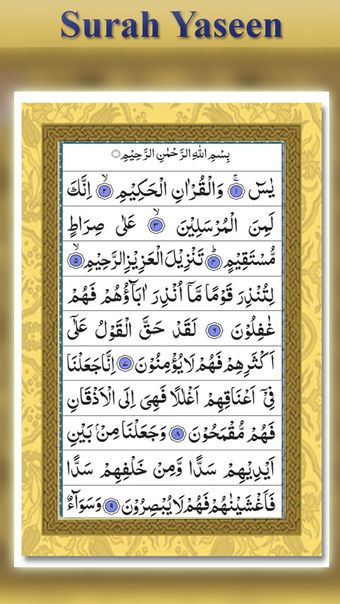 Surah Yaseen
بِسْمِ اللهِ الرَّحْمٰنِ الرَّحِيْمِ
يٰسٓ ۚ﴿۱﴾ وَالْقُرْاٰنِ الْحَكِيْمِ ۙ﴿۲﴾ اِنَّكَ
لَمِنَ الْمُرْسَلِيْنَ ۙ﴿۳﴾ عَلٰى صِرَاطٍ
مُّسْتَقِيْمٍ ؕ﴿۴﴾ تَنْزِيْلَ الْعَزِيْزِ الرَّحِيْمِ ۙ﴿۵﴾
لِتُنْذِرَ قَوْمًا مَّاۤ اُنْذِرَ اٰبَآؤُهُمْ فَهُمْ
غٰفِلُوْنَ ﴿۶﴾ لَقَدْ حَقَّ الْقَوْلُ عَلٰۤى
اَكْثَرِهِمْ فَهُمْ لَا يُؤْمِنُوْنَ ﴿۷﴾ اِنَّا جَعَلْنَا
فِيْۤ اَعْنَاقِهِمْ اَغْلٰلًا فَهِيَ اِلَى الْاَذْقَانِ
فَهُمْ مُّقْمَحُوْنَ ﴿۸﴾ وَجَعَلْنَا مِنْۢ بَيْنِ
اَيْدِيْهِمْ سَدًّا وَّمِنْ خَلْفِهِمْ سَدًّا
فَاَغْشَيْنٰهُمْ فَهُمْ لَا يُبْصِرُوْنَ ﴿۹﴾ وَسَوَآءٌ